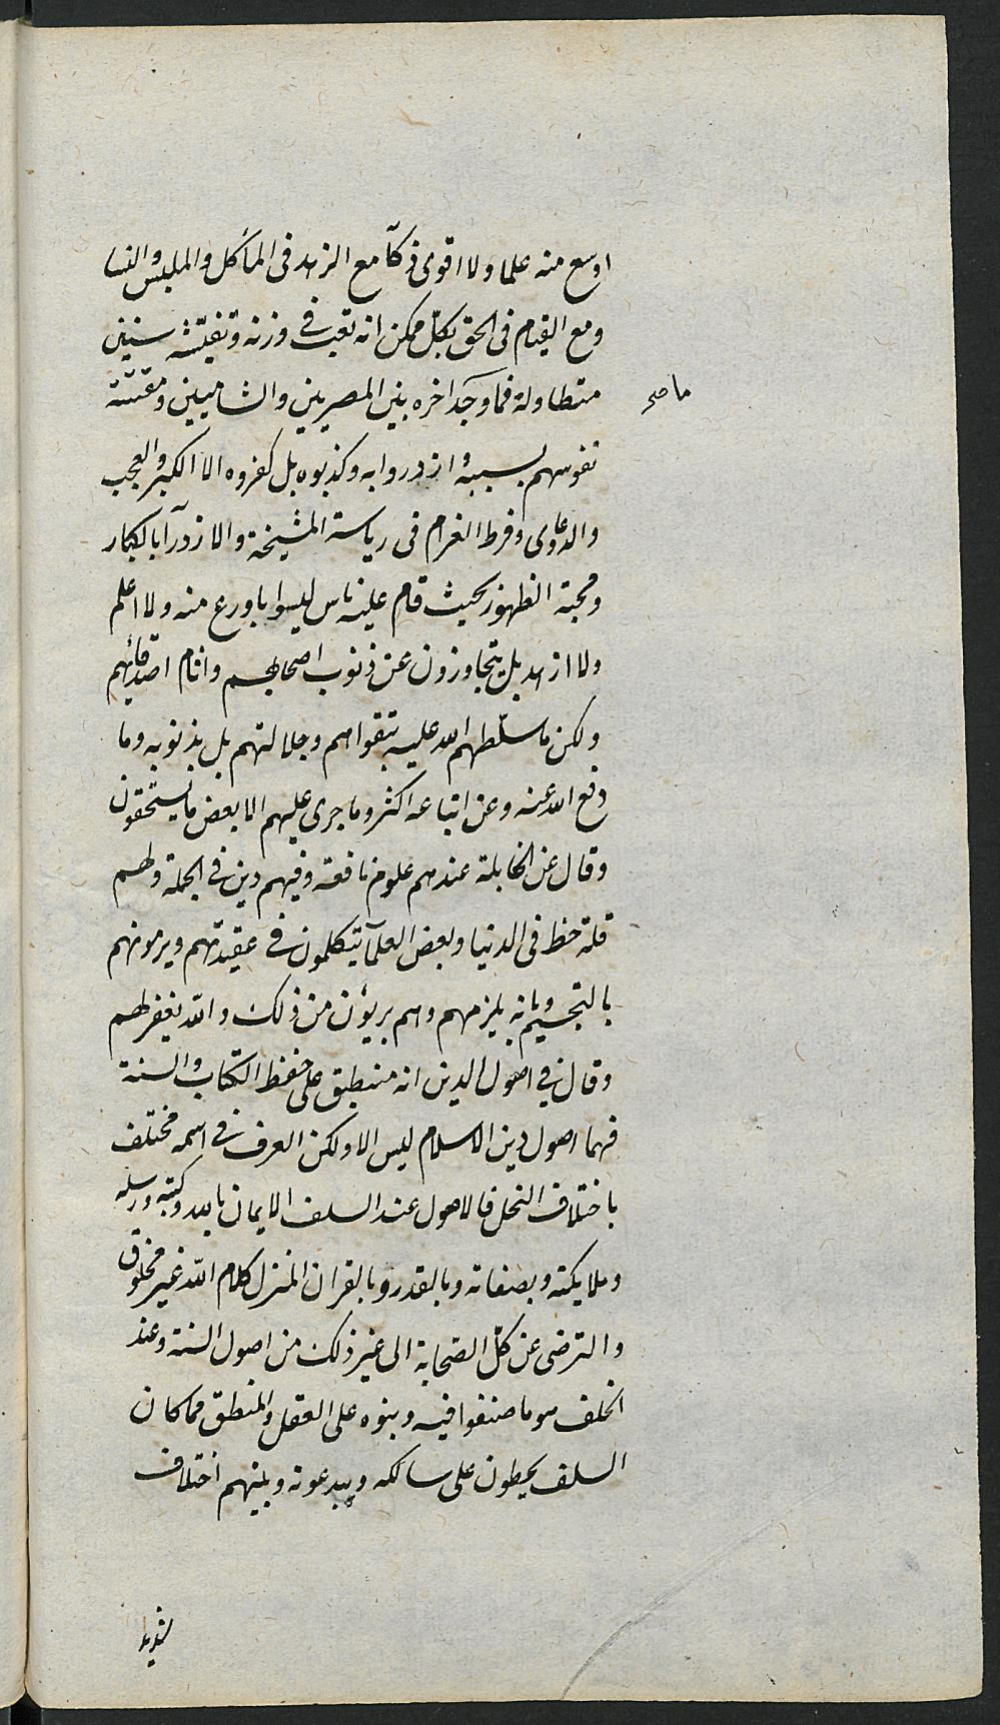 اوسع منه علما ولا اقوى ذكآ مع الزهد فى المأكل والملبس والنسا
ومع القيام فى الحق بكل ممكن انه تعبت فے وزنه وتفتيشه سنين
متطاولة فما وجد اخره بين المصريين والشاميين ومقتته
ما صح
نفوسهم بسببه وازدروا به وكذبوه بل كفروه الا الكبر والعجب
والدعاوى وفرط الغرام فى رياسة المشيخة والازدرآ بالكبار
ومحبة الظهور بحيث قام عليه ناس ليسوا باورع منه ولا اعلم
ولا ازهد بل يتجاوزون عن ذنوب اصحابهم واثام اصدقائهم
ولكن ما سلطهم الله عليه بتقواهم وجلالتهم بل بذنوبه وما
دفع الله عنه وعن اتباعه اكثر وما جرى عليهم الا بعض ما يستحقون
وقال عن الحنابلة عندهم علوم نافعة وفيهم دين فے الجملة ولهم
قلة حظ فى الدنيا وبعض العلمآ يتكلمون فے عقيدتهم ويرمونهم
بالتجسيم وبانه يلزمهم وهم بريؤن من ذلك والله يغفر لهم
وقال فے اصول الدين انه منطبق على حفظ الكتاب والسنة
فهما اصول دين الاسلام ليس الا ولكن العرف فے اسمه مختلف
باختلاف النحل فالاصول عند السلف الايمان بالله وكتبه ورسله
وملايكته وبصفاته وبالقدر وبالقران المنزل كلام الله غير مخلوق
والترضى عن كل الصحابة الى غير ذلك من اصول السنة وعند
الخلف هو ما صنفوا فيه وبنوه على العقل والمنطق فما كان
السلف يحطون على سالكه ويبدعونه وبينهم اختلاف
شديد